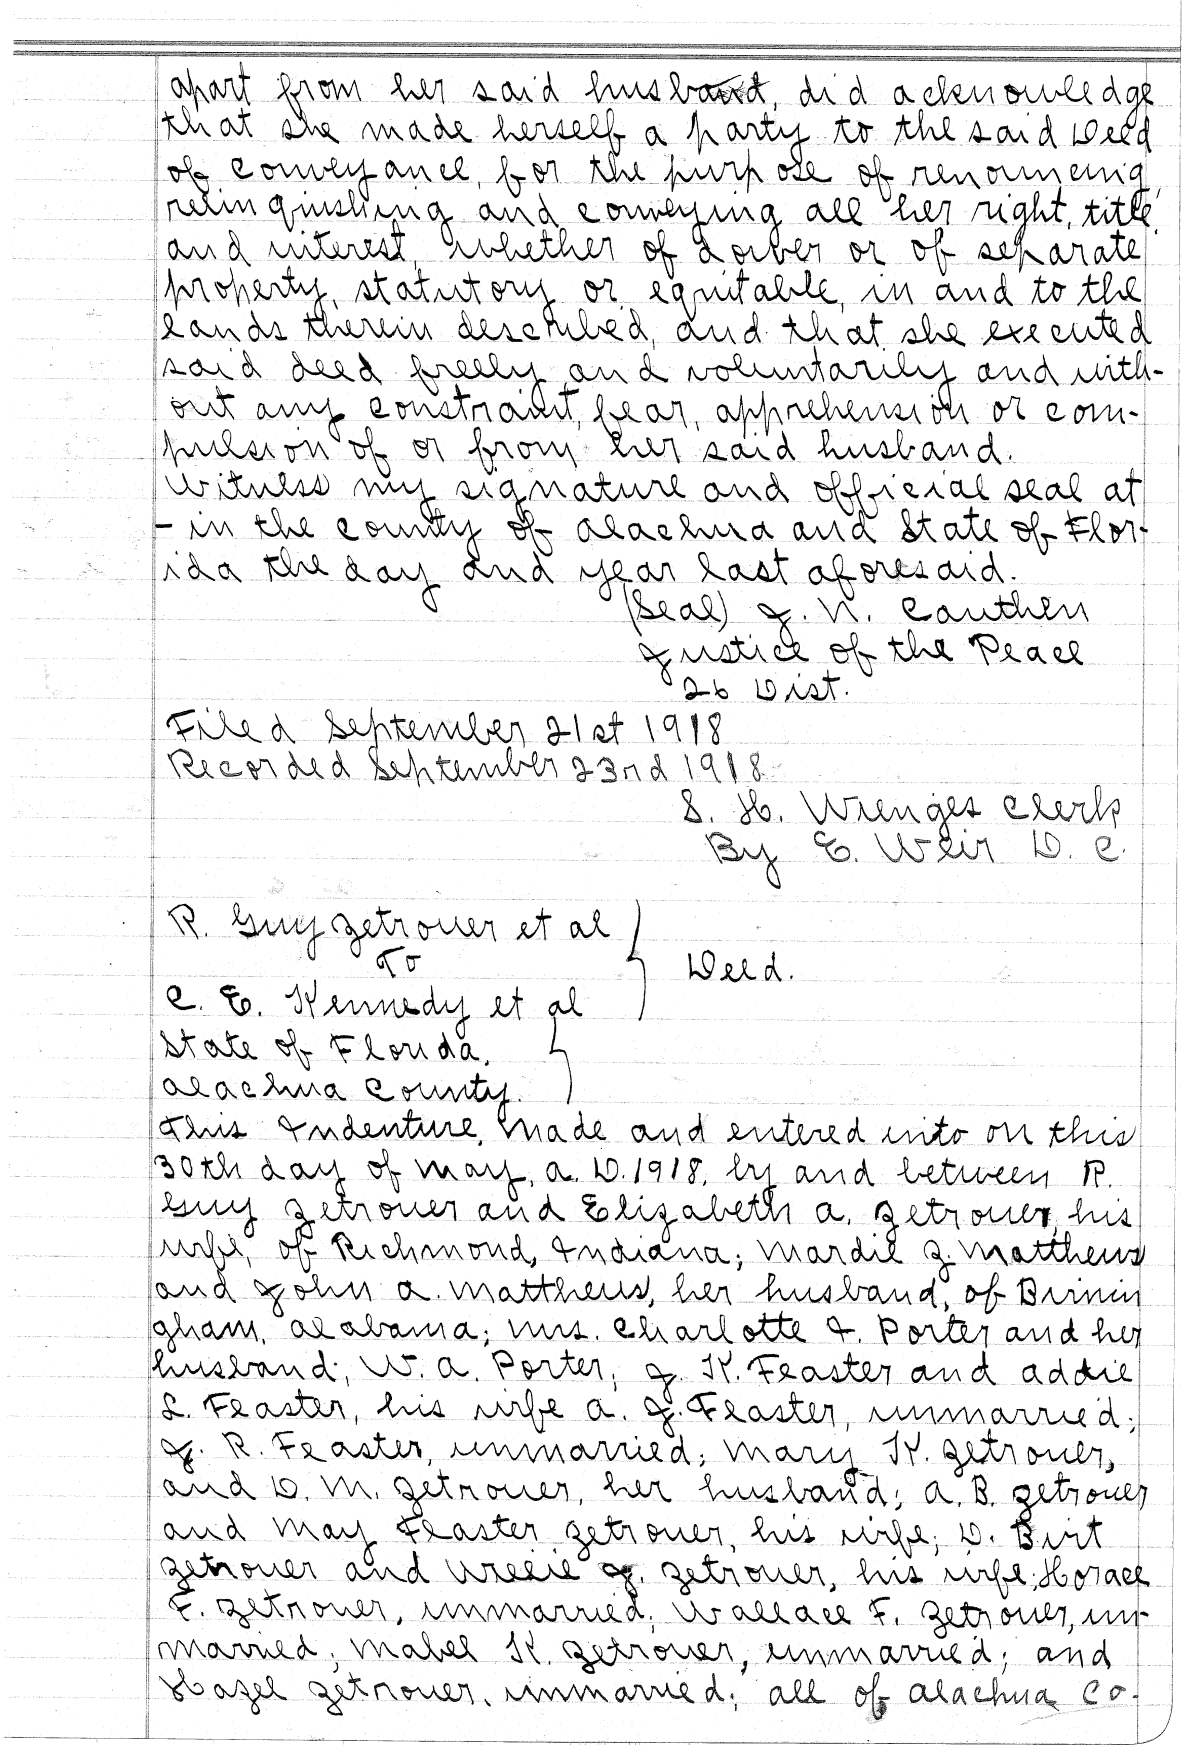 apart from her said husband, did acknowledge
that she made herself a party to the said Deed
of conveyance, for the purpose of renouncing,
relinquishing and conveying all her right, title,
and interest, whether of dower or of separate
property, statutory or equitable, in and to the
lands therein described, and that she executed
said deed freely and voluntarily and with-
out any constraint, fear, apprehension or com-
pulsion of or from her said husband.
Witness my signature and official seal at
- in the county of Alachua and State of Flor-
ida the day and year last aforesaid.
(Seal) J. N. Cauthen
Justice of the Peace
26 Dist.
Filed September 21st 1918
Recorded September 23rd 1918
S. H. Wienges Clerk
By E. Weir D. C.
R. Guy Zetrouer et al
To
Deed.
C. E. Kennedy et al
State of Florida,
Alachua County.
This Indenture, made and entered into on this
30th day of May, A. D. 1918, by and between R.
Guy Zetrouer and Elizabeth A. Zetrouer, his
wife, of Richmond, Indiana; Mardie Z. Matthews
and John A. Matthews, her husband, of Birmin
gham, Alabama; Mrs. Charlotte I. Porter and her
husband; W. A. Porter; J. K. Feaster and Addie
L. Feaster, his wife A. J. Feaster, unmarried;
J. R. Feaster, unmarried; Mary K. Zetrouer,
and D. M. Zetrouer, her husband; A. B. Zetrouer
and May Feaster Zetrouer, his wife; D. Birt
Zetrouer and J. Zetrouer, his wife; Horace
F. Zetrouer, unmarried; Wallace F. Zetrouer, un-
married; Mabel K. Zetrouer, unmarried; and
Hazel Zetrouer, unmarried; all of Alachua Co-